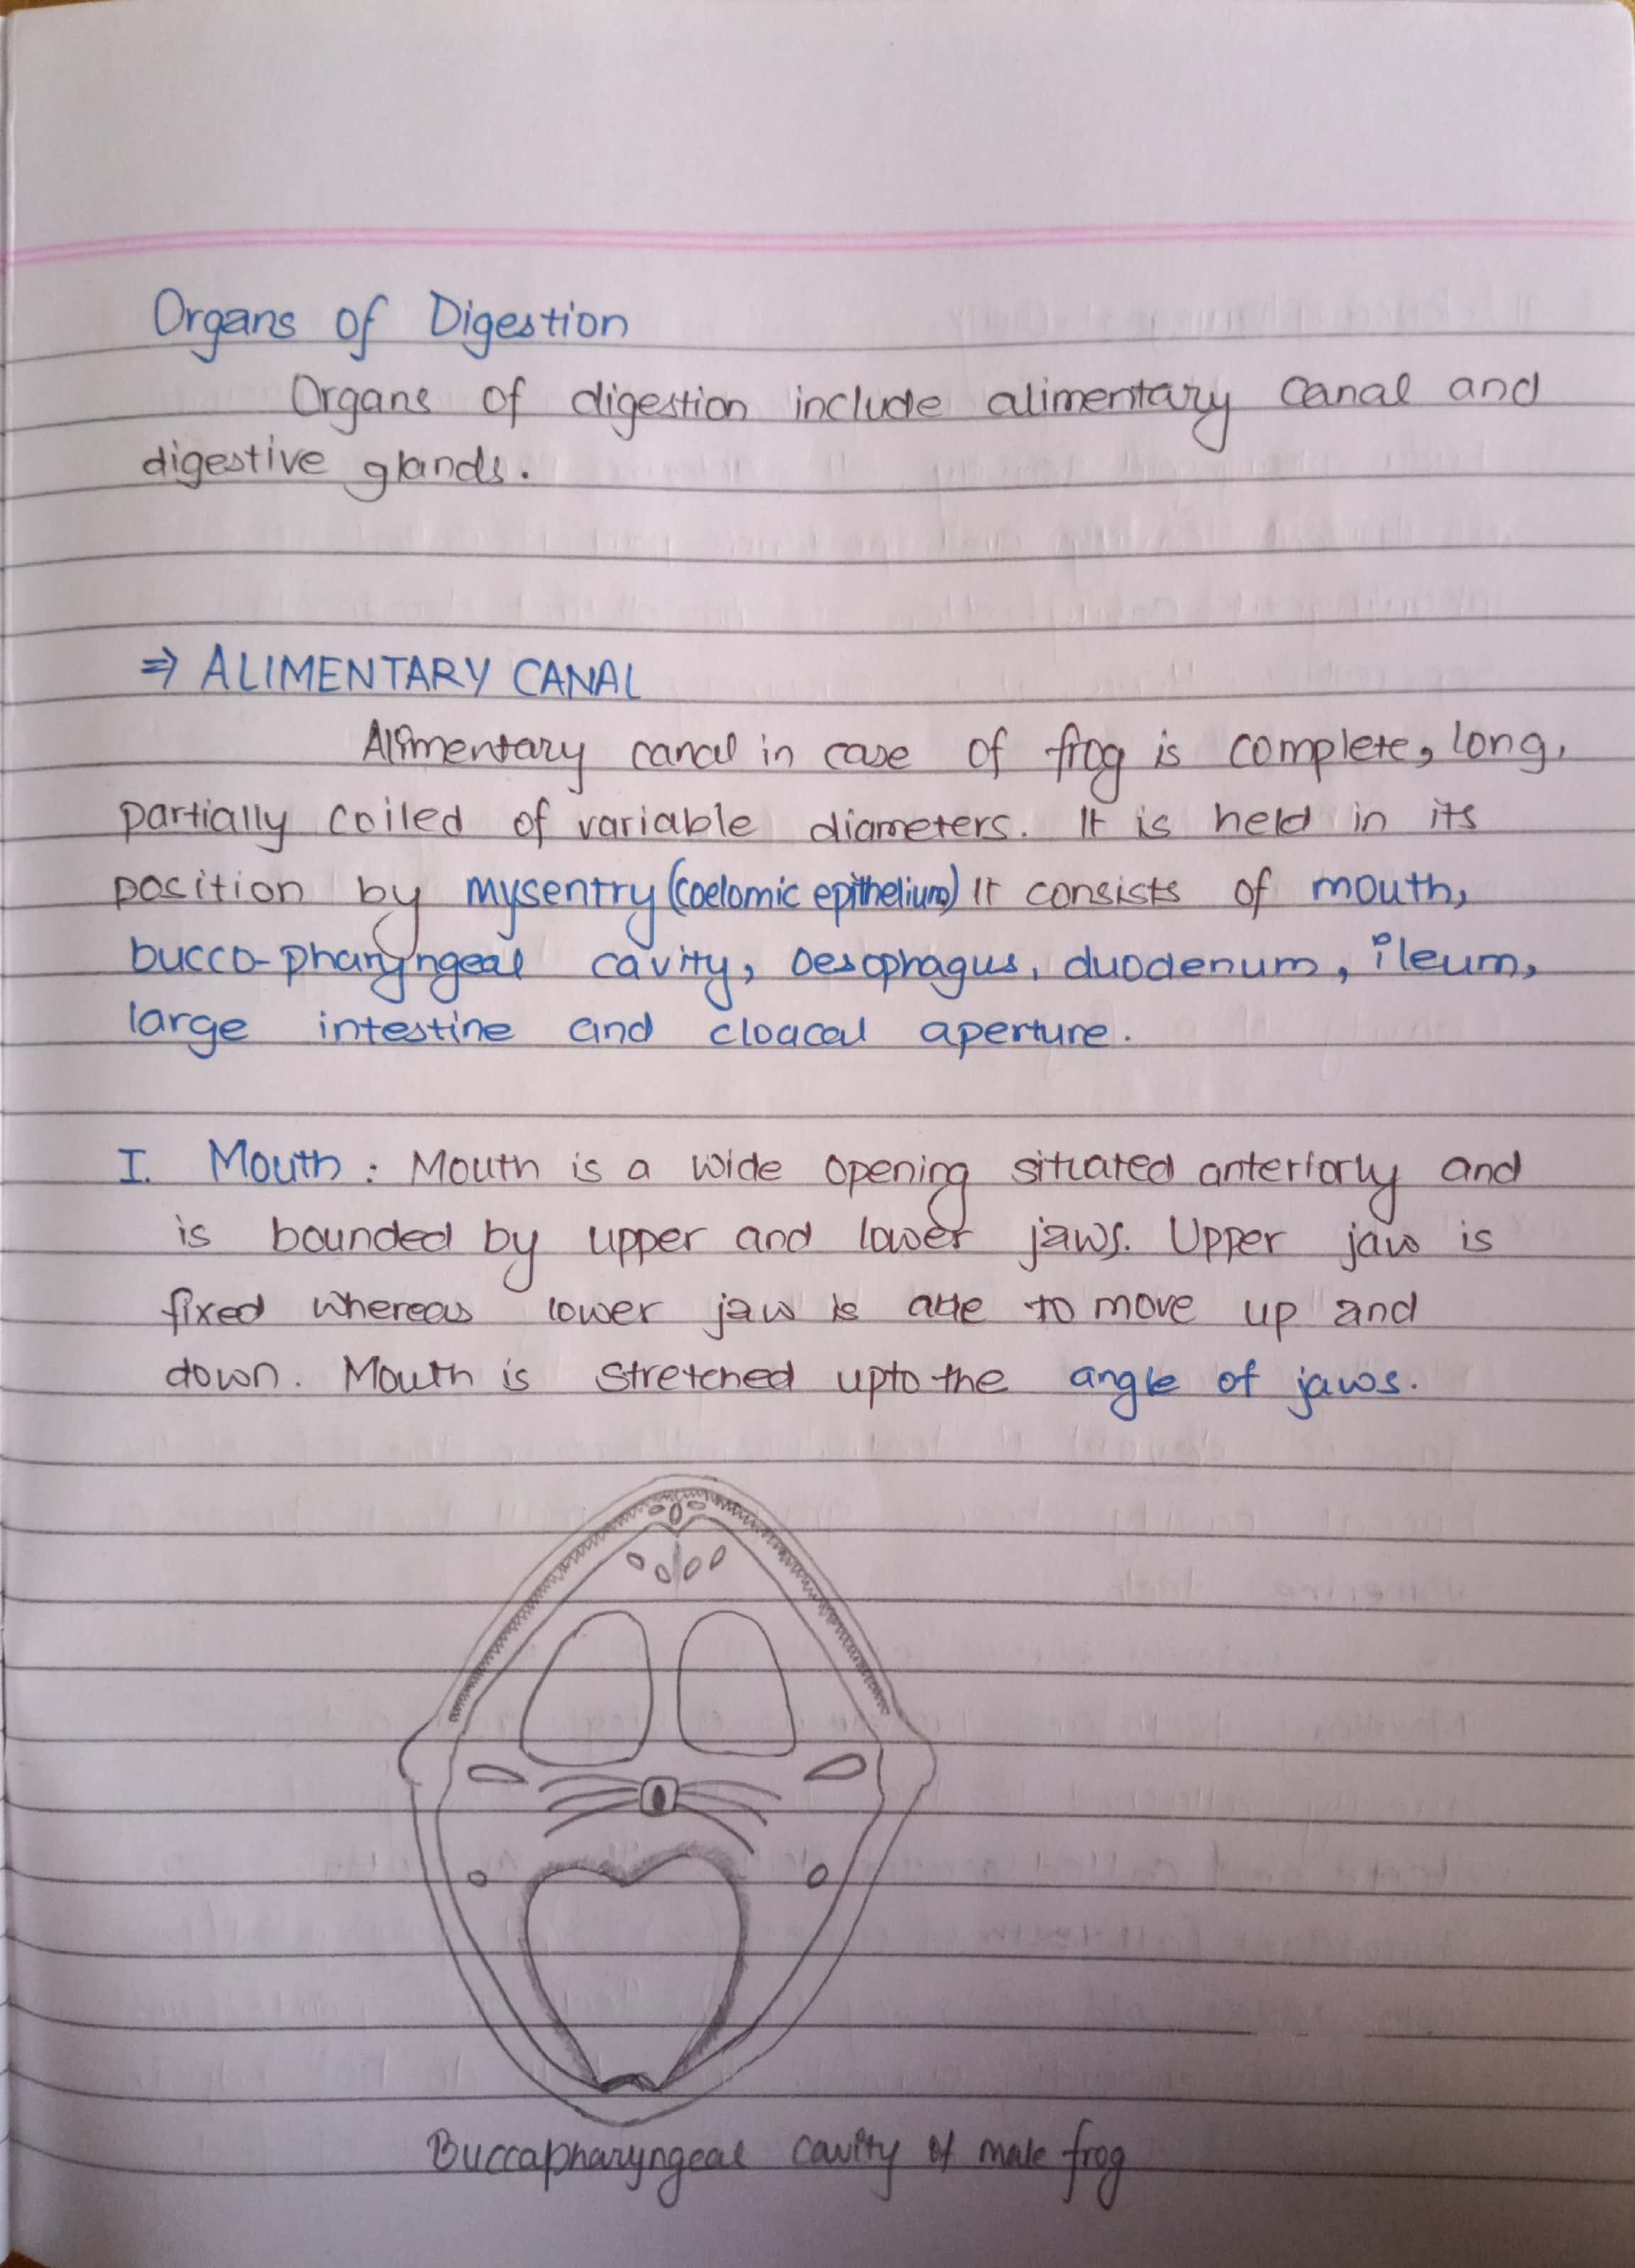 Organs of Digestion
Organs of digestion include alimentary canal and
digestive glands.
⇒ ALIMENTARY CANAL
Alimentary canal in case of frog is complete, long,
partially coiled of variable diameters. It is held in its
position by mysentry (coelomic epithelium) It consists of mouth,
bucco-pharyngeal cavity, oesophagus, duodenum, ileum,
large intestine and cloacal aperture.
I. Mouth : Mouth is a wide opening situated anteriorly and
is bounded by upper and lower jaws. Upper jaw is
fixed whereas lower jaw is able to move up and
down. Mouth is stretched upto the angle of jaws.
Buccapharyngeal cavity of male frog